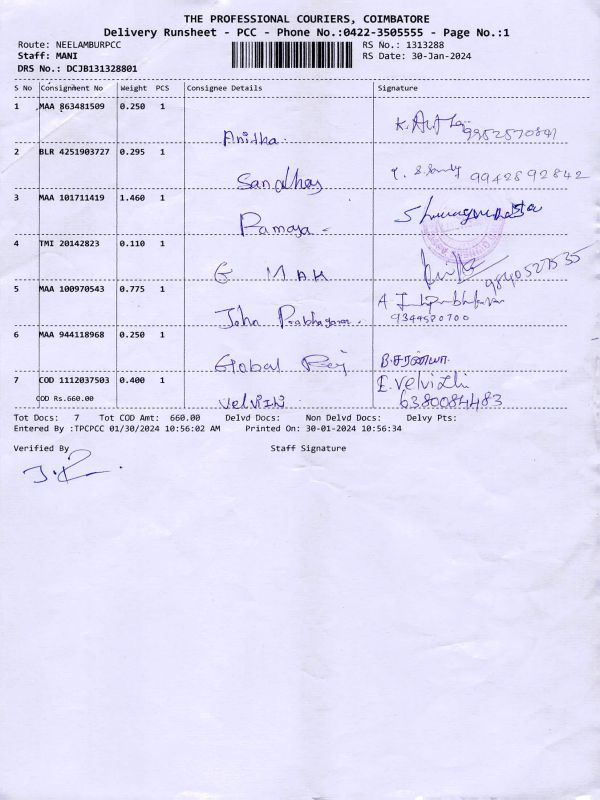 THE PROFESSIONAL COURIERS, COIMBATORE
Delivery Runsheet - PCC - Phone No.:0422-3505555 - Page No.:1
Route: NEELAMBURPCC RS No.: 1313288
Staff: MANI RS Date: 30-Jan-2024
DRS No.: DCJB131328801
S No Consignment No Weight PCS Consignee Details Signature
1 MAA 863481509 0.250 1
Anitha. 9952570841
2 BLR 4251903727 0.295 1
Sandhay 9942892842
3 MAA 101711419 1.460 1
Ramaya -
4 TMI 20142823 0.110 1
G MAH 9840527535
5 MAA 100970543 0.775 1 A.
John Prabhagaran. 9344580700
6 MAA 944118968 0.250 1
Global B.சரண்யா.
7 COD 1112037503 0.400 1 E. Velvizhi
COD Rs.660.00 Velvizhi 6380084483
Tot Docs: 7 Tot COD Amt: 660.00 Delvd Docs: Non Delvd Docs: Delvy Pts:
Entered By :TPCPCC 01/30/2024 10:56:02 AM Printed On: 30-01-2024 10:56:34
Verified By Staff Signature